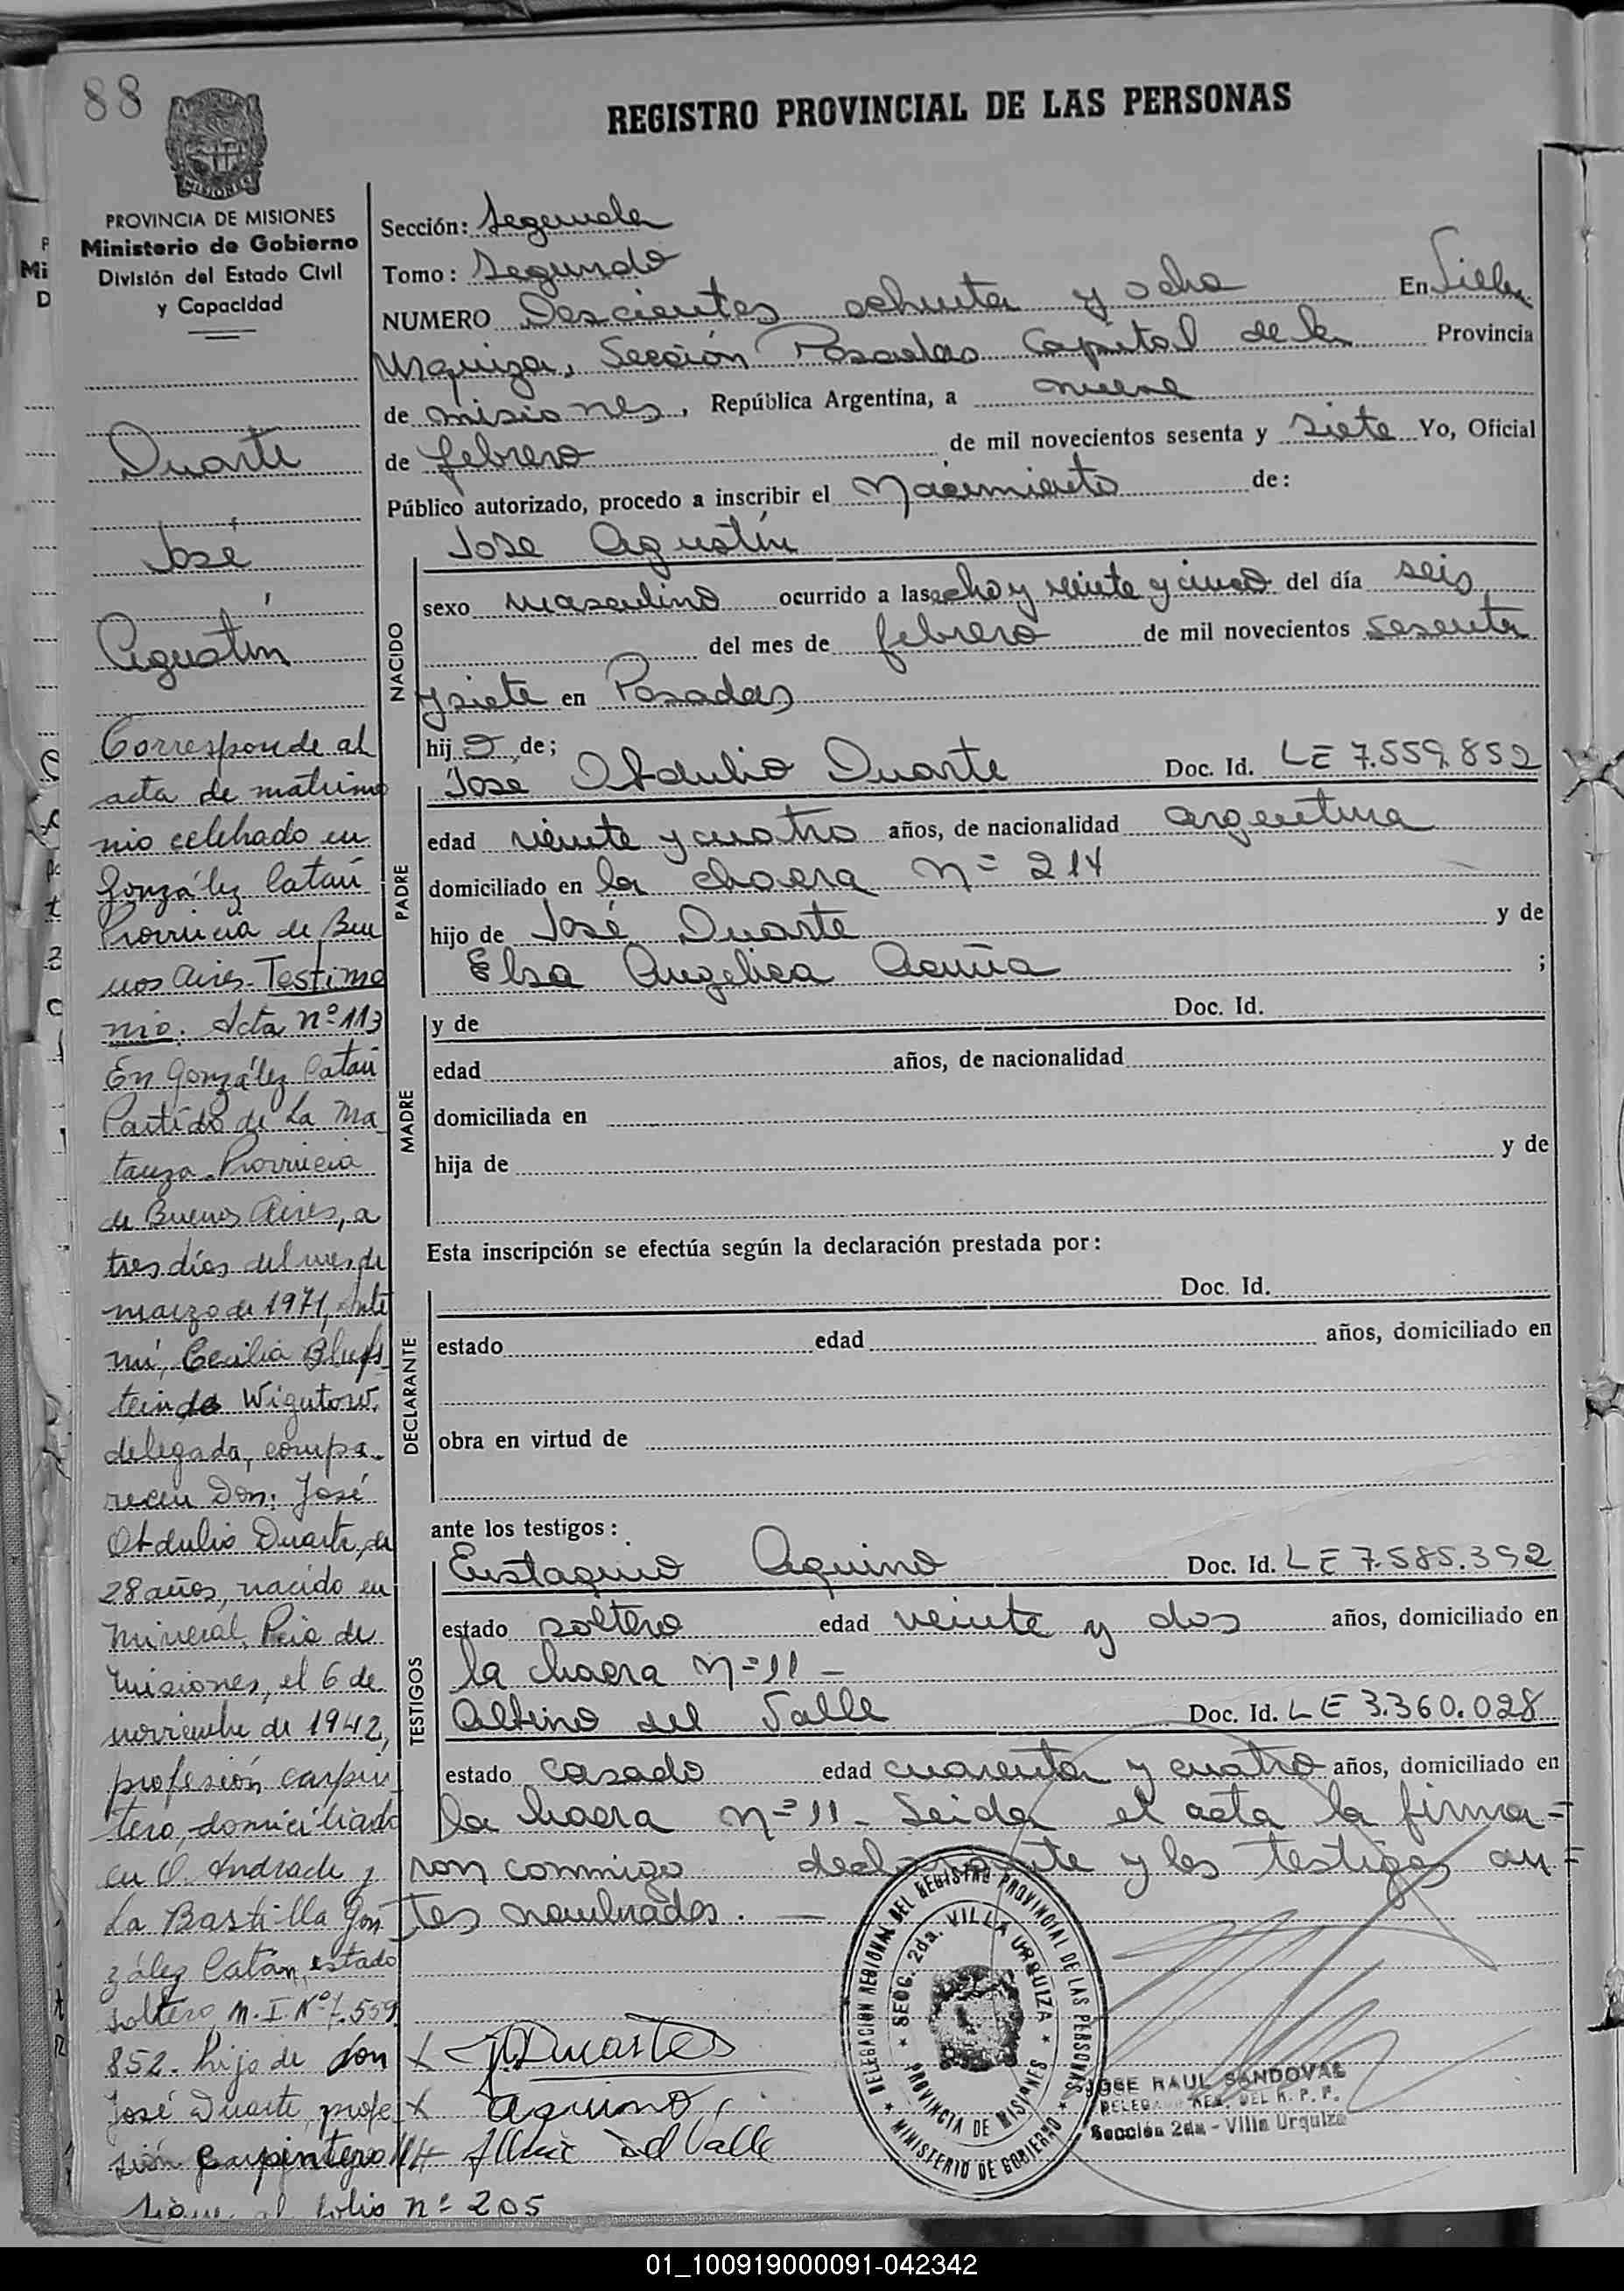 88
REGISTRO PROVINCIAL DE LAS PERSONAS
MISIONES
PROVINCIA DE MISIONES
Ministerio de Gobierno
División del Estado Civil
y Capacidad
Sección: Segunda
Tomo: Segundo
NUMERO Doscientos ochenta y ocho En Villa
Urquiza, Sección Posadas Capital de la Provincia
de misiones, República Argentina, a nueve
de febrero de mil novecientos sesenta y siete Yo, Oficial
Público autorizado, procedo a inscribir el Nacimiento de:
Jose Agustín
NACIDO
sexo masculino ocurrido a las ocho y veinte y cinco del día seis
del mes de febrero de mil novecientos sesenta
y siete en Posadas
hijo de;
PADRE
José Obdulio Duarte Doc. Id. LE 7.559.852
edad veinte y cuatro años, de nacionalidad argentina
domiciliado en la chacra n= 214
hijo de José Duarte y de
Elsa Angelica Acuña ;
MADRE
y de Doc. Id.
edad años, de nacionalidad
domiciliada en
hija de y de
Esta inscripción se efectúa según la declaración prestada por:
DECLARANTE
Doc. Id.
estado edad años, domiciliado en
obra en virtud de
ante los testigos:
TESTIGOS
Eustaquio Aquino Doc. Id. LE 7.585.392
estado soltero edad veinte y dos años, domiciliado en
la chacra n=11-
Albino del Valle Doc. Id. LE 3.360.028
estado casado edad cuarenta y cuatro años, domiciliado en
la chacra n=11- Leida el acta la firma=
ron conmigo declarante y los testigos an=
tes nombrados. —
J. Duartes
Aquino
Albino del Valle
DELEGACION REGIONAL DEL REGISTRO PROVINCIAL DE LAS PERSONAS
MINISTERIO DE GOBIERNO
SECC. 2da. VILLA URQUIZA
PROVINCIA DE MISIONES
JOSE RAUL SANDOVAL
DELEGADO REG. DEL R. P. P.
Sección 2da - Villa Urquiza
Duarte
José
Agustín
Corresponde al
acta de matrimo
nio celebrado en
González Catán
Provincia de Bue
nos Aires. Testimo
nio. Acta nº 113
En González Catán
Partido de La Ma
tanza Provincia
de Buenos Aires, a
tres días del mes de
marzo de 1971, ante
mí, Cecilia
tein de Wigutow,
delegada, compa-
recen Don: José
Obdulio Duarte, de
28 años, nacido en
Mineral, Pcia de
Misiones, el 6 de
noviembre de 1942,
profesión carpin
tero, domiciliado
en O. Andrade y
La Bastilla Gon
zález Catán, estado
soltero, M. I. Nº 7.559.
852. hijo de don
José Duarte, profe
sión carpintero
Sigue al folio nº 205
01_100919000091-042342